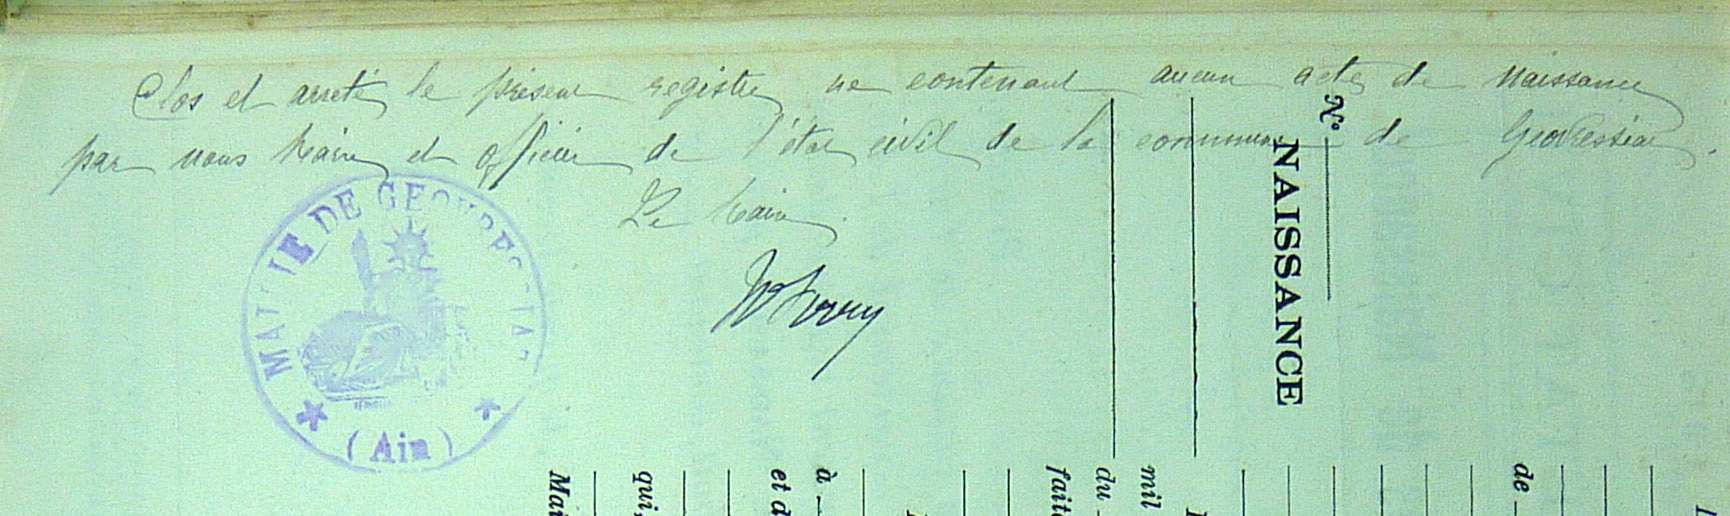 Clos et arreté le présent registre ne contenant aucun acte de Naissance
par nous Maire et officier de l'état civil de la commune de Geovressiat.
Le Maire
MAIRIE DE GEOVRESSIAT
(Ain)
N°
NAISSANCE
de
mil
du
faite
à
et d
qui,
Mai